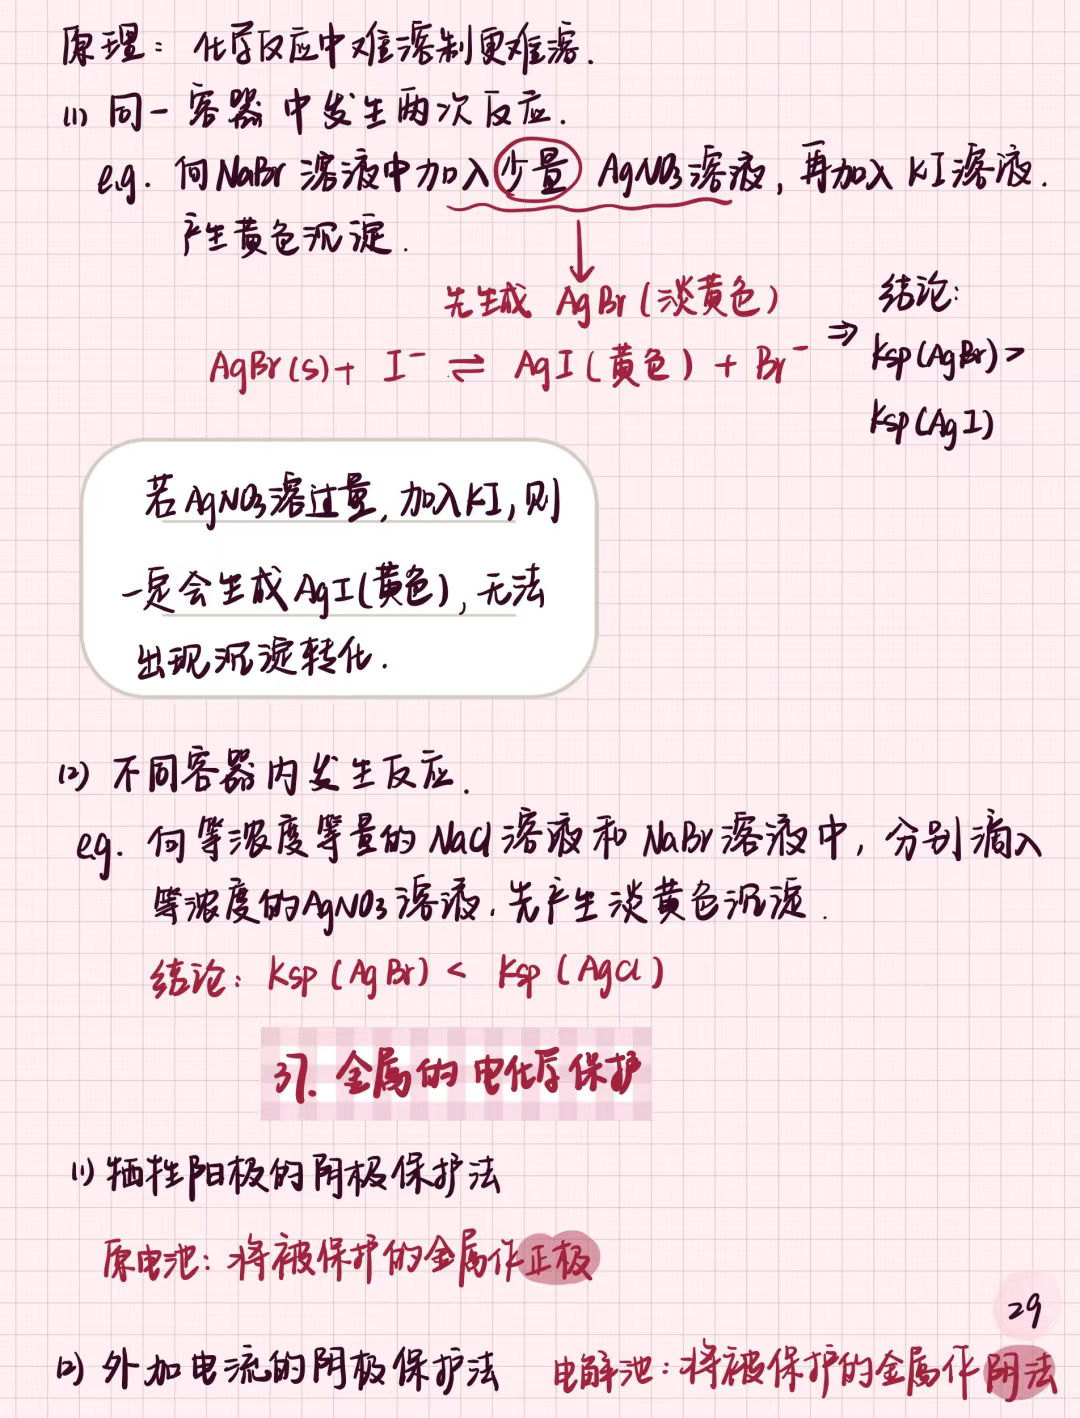 原理：化学反应中难溶制更难溶.
(1) 同一容器中发生两次反应.
e.g. 向NaBr溶液中加入少量 AgNO3溶液, 再加入KI溶液.
产生黄色沉淀.
先生成 AgBr(淡黄色)
AgBr(s)+ I⁻ ⇌ AgI(黄色) + Br⁻
⇒ 结论:
Ksp(AgBr) >
Ksp(AgI)
若AgNO3溶过量, 加入KI, 则
一定会生成AgI(黄色), 无法
出现沉淀转化.
(2) 不同容器内发生反应.
e.g. 向等浓度等量的NaCl溶液和NaBr溶液中, 分别滴入
等浓度的AgNO3溶液. 先产生淡黄色沉淀.
结论: Ksp(AgBr) < Ksp(AgCl)
37. 金属的电化学保护
(1) 牺牲阳极的阴极保护法
原电池: 将被保护的金属作正极
29
(2) 外加电流的阴极保护法 电解池: 将被保护的金属作阴法